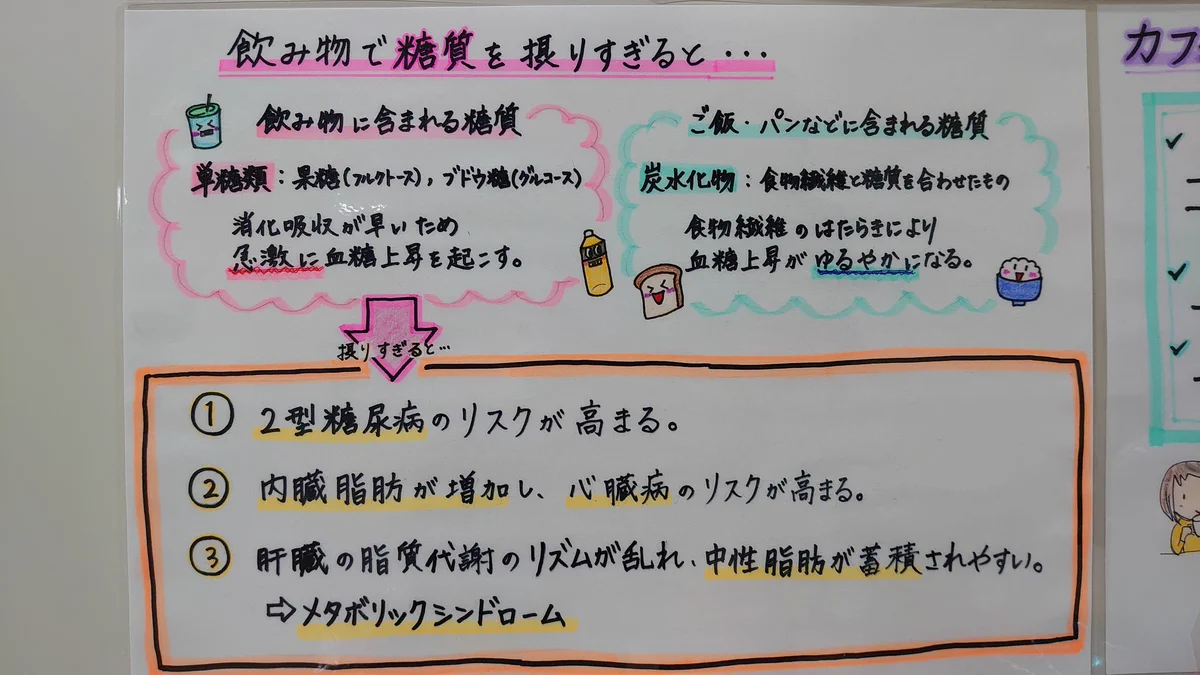 飲み物で糖質を摂りすぎると・・・
飲み物に含まれる糖質
単糖類：果糖(フルクトース)，ブドウ糖(グルコース)
消化吸収が早いため
急激に血糖上昇を起こす。
ご飯・パンなどに含まれる糖質
炭水化物：食物繊維と糖質を合わせたもの
食物繊維のはたらきにより
血糖上昇がゆるやかになる。
摂りすぎると…
① 2型糖尿病のリスクが高まる。
② 内臓脂肪が増加し、心臓病のリスクが高まる。
③ 肝臓の脂質代謝のリズムが乱れ、中性脂肪が蓄積されやすい。
⇨メタボリックシンドローム
カフ